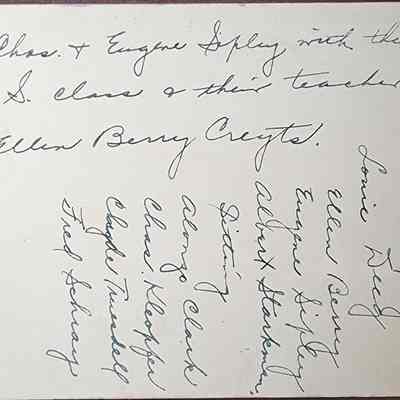 Chas. & Eugene Sipley with the
S. class & their teacher
Ellen Berry Creyts.
Lonie Deeg
Ellen Berry
Eugene Sipley
Albert Starkm
Sitting
Alonzo Clark
Chas Kleopfer
Clayde Truesdell
Fred Schray